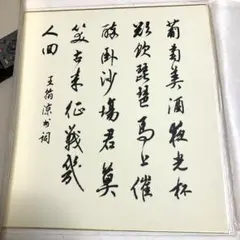 葡萄美酒夜光杯
欲飲琵琶馬上催
醉卧沙場君莫
笑古来征戰幾
人回
王翰涼州詞